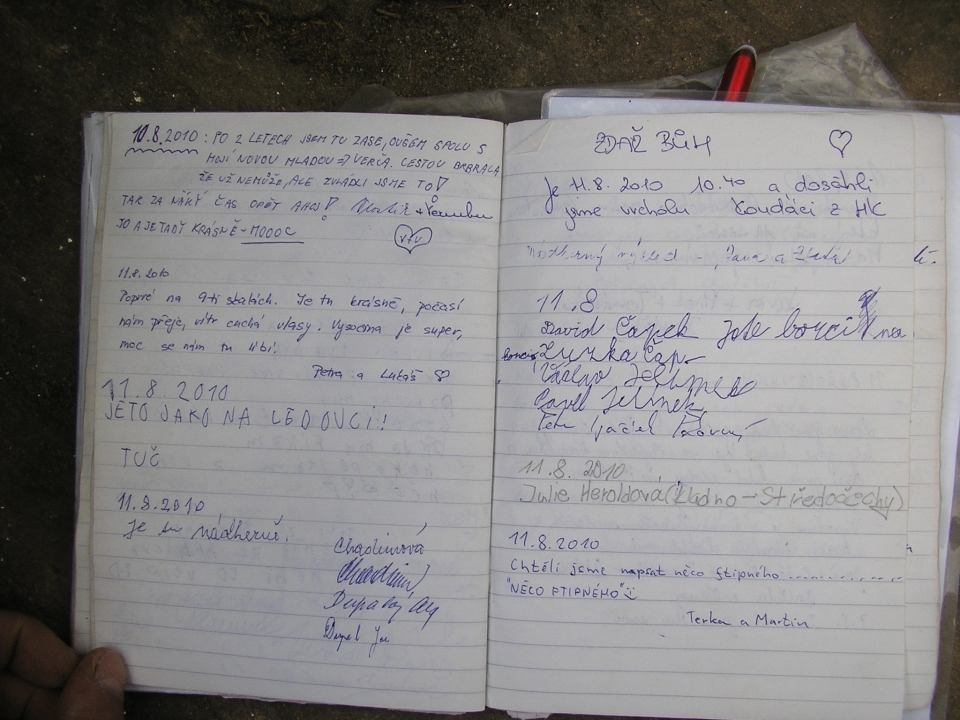 10.8.2010 : PO 2 LETECH JSEM TU ZASE, OVŠEM SPOLU S
MOJÍ NOVOU MLADOU => VERČA. CESTOU BRBLALA,
ŽE UŽ NEMŮŽE, ALE ZVLÁDLI JSME TO!
TAK ZA NÁKÝ ČAS OPĚT AHOJ!
JO A JE TADY KRÁSNĚ - MOOOC
V+V
11.8.2010
Poprvé na 9-ti skalách. Je tu krásně, počasí
nám přeje, vítr cuchá vlasy. Vysočina je super,
moc se nám tu líbí!
Petra a Lukáš
11.8.2010
JE TO JAKO NA LEDOVCI!
TUČ
11.8.2010
Je tu nádherně.
Chadimová
ZDAŘ BŮH
Je 11.8. 2010 10.40 a dosáhli
jsme vrcholu Čouďáci z HK
výhled
11.8
David Čapek jste borci
Zuzka Čap.
Pavel Jelínek
Petr
11.8.2010
Julie Heroldová (Kladno - Středočechy)
11.8.2010
Chtěli jsme napsat něco ftipného
"NĚCO FTIPNÉHO"
Terka a Martin